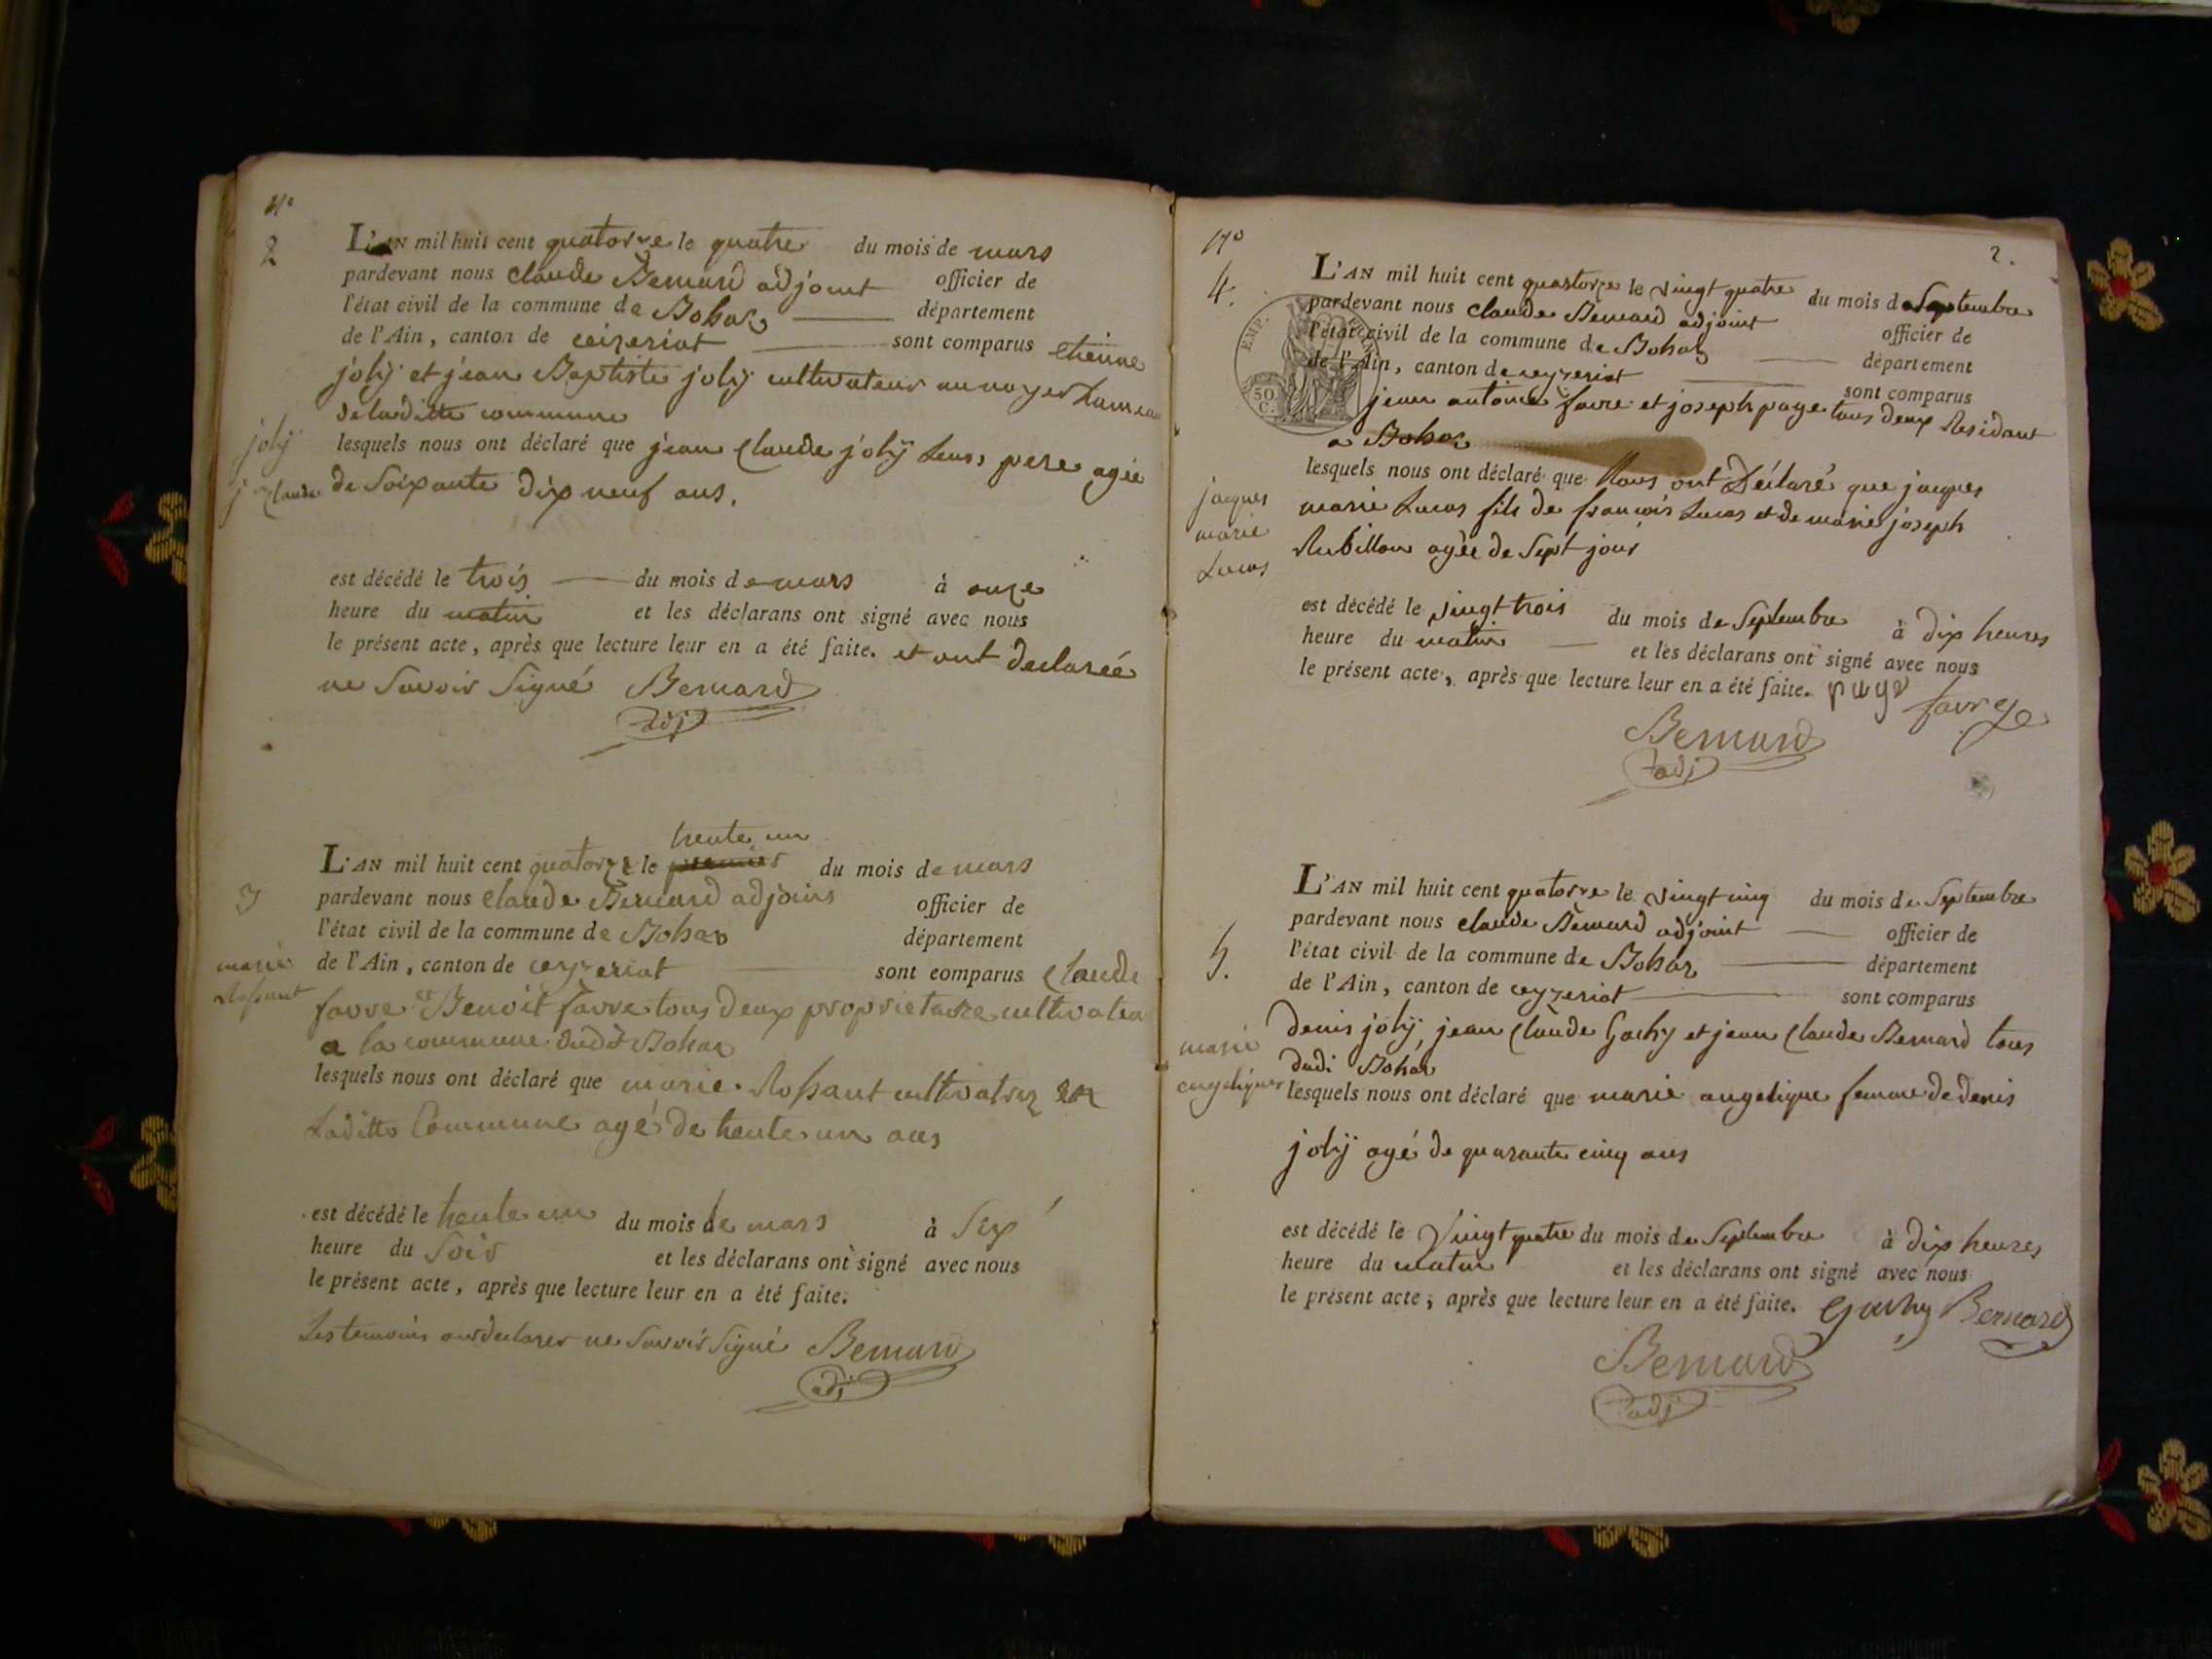 N°
2
L'AN mil huit cent quatorze le quatre du mois de mars
pardevant nous claude Bernard adjoint officier de
l'état civil de la commune de Bohas département
de l'Ain, canton de ceizeriat sont comparus etienne
jolÿ et jean Baptiste jolÿ cultivateur au noyer hamea
deladitte commune
jolÿ
j claude
lesquels nous ont déclaré que jean Claude jolÿ Leurs pere agée
de Soixante dix neuf ans.
est décédé le trois du mois de mars à onze
heure du matin et les déclarans ont signé avec nous
le présent acte, après que lecture leur en a été faite. et ont declareé
ne Savoir Signé Bernard
adj
3
marie
Rossant
L'AN mil huit cent quatorze le premier trente un du mois de mars
pardevant nous claude Bernard adjoins officier de
l'état civil de la commune de Bohas département
de l'Ain, canton de ceyzeriat sont comparus Claude
favre et Benoit favre tous deux proprietaire cultivateu
a la commune dudit Bohas
lesquels nous ont déclaré que marie Rossant cultivatrez en
Laditte Commune agé de trente un ans
est décédé le trente un du mois de mars à Six
heure du Soir et les déclarans ont signé avec nous
le présent acte, après que lecture leur en a été faite.
Les temoins ont declarer ne Savoir Signé Bernard
adj
N°
2.
4.
EMP.
50
C.
L'AN mil huit cent quastorze le vingt quatre du mois de Septembre
pardevant nous claude Bernard adjoint officier de
l'état civil de la commune de Bohas département
de l'Ain, canton de ceyzeriat sont comparus
jean antoine favre et joseph page tous deux Residant
a Bohas
jaques
marie
Lucas
lesquels nous ont déclaré que Nous ont Déclaré que jacques
marie Lucas fils de francois Lucas et de marie joseph
Rubillon agée de Sept jour
est décédé le vingt trois du mois de Septembre à dix heures
heure du matin et les déclarans ont signé avec nous
le présent acte, après que lecture leur en a été faite. page favre
Bernard
adj
5.
marie
angelique
L'AN mil huit cent quatorze le vingt cinq du mois de Septembre
pardevant nous claude Bernard adjoint officier de
l'état civil de la commune de Bohas département
de l'Ain, canton de ceyzeriat sont comparus
denis jolÿ, jean Claude Gachy et jean Claude Bernard tous
dudi Bohas
lesquels nous ont déclaré que marie angelique femme de denis
jolÿ agé de quarante cinq ans
est décédé le Vingt quatre du mois de Septembre à dix heures
heure du matin et les déclarans ont signé avec nous
le présent acte, après que lecture leur en a été faite. Gachy Bernard
Bernard
adj